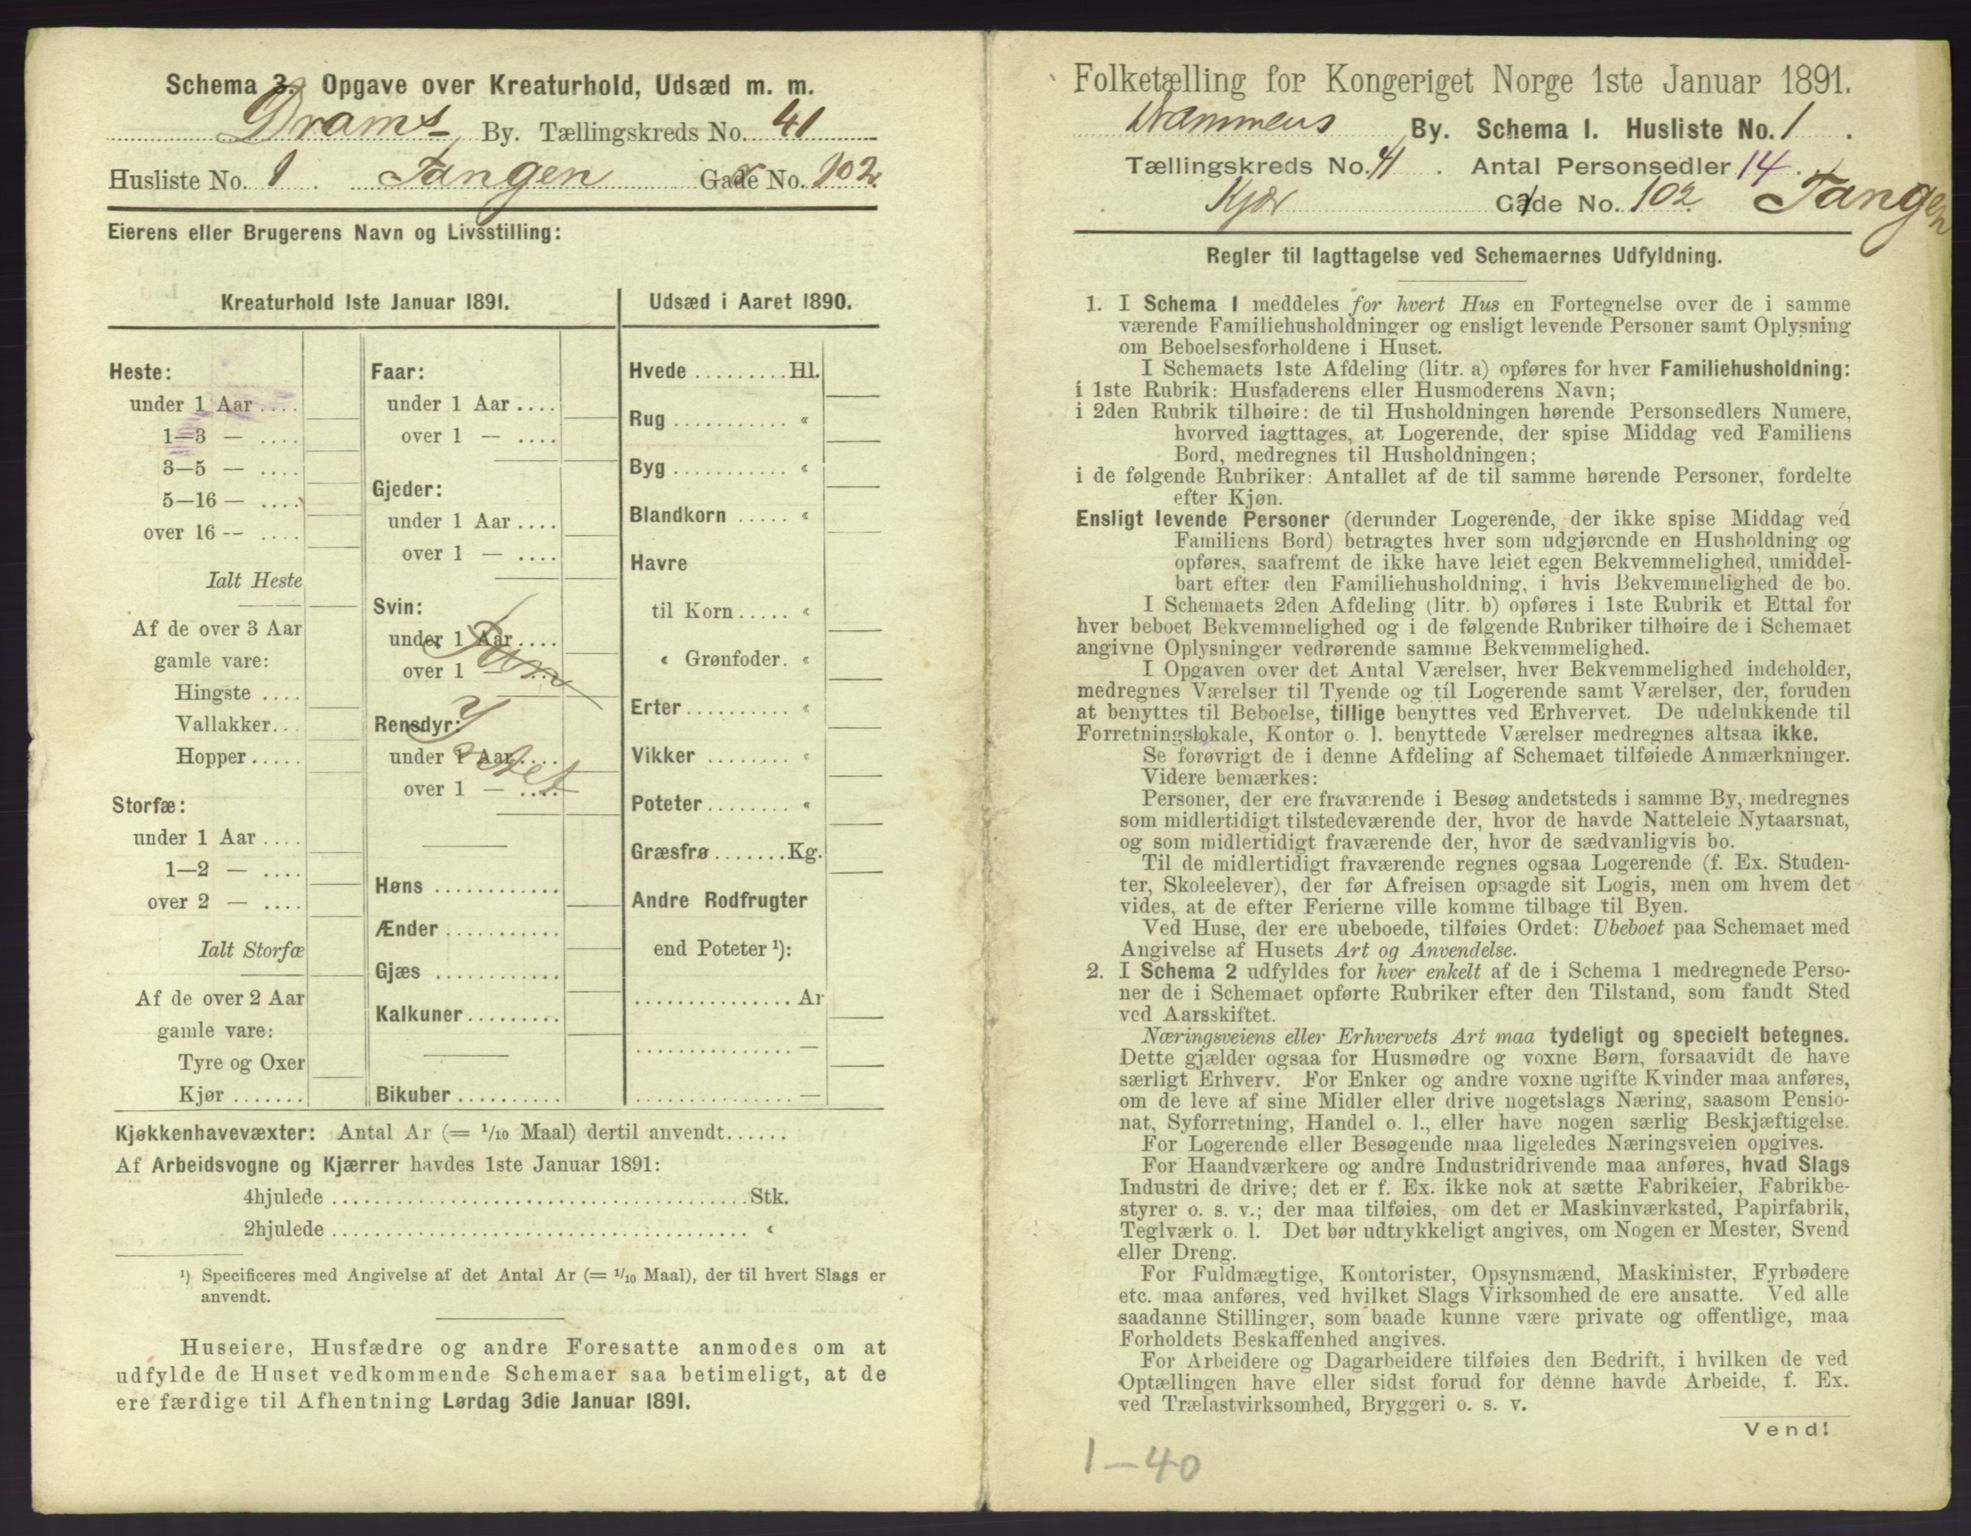 Schema 3. Opgave over Kreaturhold, Udsæd m. m.
Drams By. Tællingskreds No. 41
Husliste No. 1 Tangen Gade No. 102.
Eierens eller Brugerens Navn og Livsstilling:
Kreaturhold 1ste Januar 1891.
Heste:
under 1 Aar ....
1—3 — ....
3—5 — ....
5—16 — ....
over 16 -- ....
Ialt Heste
Af de over 3 Aar
gamle vare:
Hingste ....
Vallakker...
Hopper.....
Storfæ:
under 1 Aar ....
1—2 — ....
over 2 — ....
Ialt Storfæ
Af de over 2 Aar
gamle vare:
Tyre og Oxer
Kjør .......
Faar:
under 1 Aar ....
over 1 — ....
Gjeder:
under 1 Aar ....
over 1 — ....
Svin:
under 1 Aar ....
over 1 — ....
Rensdyr:
under 1 Aar ....
over 1 — ....
Høns ............
Ænder ...........
Gjæs ............
Kalkuner.........
Bikuber ..........
Udsæd i Aaret 1890.
Hvede .........Hl.
Rug ........... «
Byg ........... «
Blandkorn ..... «
Havre
til Korn ..... «
« Grønfoder. «
Erter.......... «
Vikker ........ «
Poteter........ «
Græsfrø .......Kg.
Andre Rodfrugter
end Poteter ¹):
............... Ar
............... —
............... —
Kjøkkenhavevæxter: Antal Ar (= 1/10 Maal) dertil anvendt......
Af Arbeidsvogne og Kjærrer havdes 1ste Januar 1891:
4hjulede ........................................Stk.
2hjulede ........................................ «
¹) Specificeres med Angivelse af det Antal Ar (= 1/10 Maal), der til hvert Slags er
anvendt.
Huseiere, Husfædre og andre Foresatte anmodes om at
udfylde de Huset vedkommende Schemaer saa betimeligt, at de
ere færdige til Afhentning Lørdag 3die Januar 1891.
Folketælling for Kongeriget Norge 1ste Januar 1891.
Drammens By. Schema I. Husliste No. 1.
Tællingskreds No. 41. Antal Personsedler 14.
Kjør Gade No. 102 Tangen
Regler til Iagttagelse ved Schemaernes Udfyldning.
1. I Schema 1 meddeles for hvert Hus en Fortegnelse over de i samme
værende Familiehusholdninger og ensligt levende Personer samt Oplysning
om Beboelsesforholdene i Huset.
I Schemaets 1ste Afdeling (litr. a) opføres for hver Familiehusholdning:
i 1ste Rubrik: Husfaderens eller Husmoderens Navn;
i 2den Rubrik tilhøire: de til Husholdningen hørende Personsedlers Numere,
hvorved iagttages, at Logerende, der spise Middag ved Familiens
Bord, medregnes til Husholdningen;
i de følgende Rubriker: Antallet af de til samme hørende Personer, fordelte
efter Kjøn.
Ensligt levende Personer (derunder Logerende, der ikke spise Middag ved
Familiens Bord) betragtes hver som udgjørende en Husholdning og
opføres, saafremt de ikke have leiet egen Bekvemmelighed, umiddel-
bart efter den Familiehusholdning, i hvis Bekvemmelighed de bo.
I Schemaets 2den Afdeling (litr. b) opføres i 1ste Rubrik et Ettal for
hver beboet Bekvemmelighed og i de følgende Rubriker tilhøire de i Schemaet
angivne Oplysninger vedrørende samme Bekvemmelighed.
I Opgaven over det Antal Værelser, hver Bekvemmelighed indeholder,
medregnes Værelser til Tyende og til Logerende samt Værelser, der, foruden
at benyttes til Beboelse, tillige benyttes ved Erhvervet. De udelukkende til
Forretningslokale, Kontor o. l. benyttede Værelser medregnes altsaa ikke.
Se forøvrigt de i denne Afdeling af Schemaet tilføiede Anmærkninger.
Videre bemærkes:
Personer, der ere fraværende i Besøg andetsteds i samme By, medregnes
som midlertidigt tilstedeværende der, hvor de havde Natteleie Nytaarsnat,
og som midlertidigt fraværende der, hvor de sædvanligvis bo.
Til de midlertidigt fraværende regnes ogsaa Logerende (f. Ex. Studen-
ter, Skoleelever), der før Afreisen opsagde sit Logis, men om hvem det
vides, at de efter Ferierne ville komme tilbage til Byen.
Ved Huse, der ere ubeboede, tilføies Ordet: Ubeboet paa Schemaet med
Angivelse af Husets Art og Anvendelse.
2. I Schema 2 udfyldes for hver enkelt af de i Schema 1 medregnede Perso-
ner de i Schemaet opførte Rubriker efter den Tilstand, som fandt Sted
ved Aarsskiftet.
Næringsveiens eller Erhvervets Art maa tydeligt og specielt betegnes.
Dette gjælder ogsaa for Husmødre og voxne Børn, forsaavidt de have
særligt Erhverv. For Enker og andre voxne ugifte Kvinder maa anføres,
om de leve af sine Midler eller drive nogetslags Næring, saasom Pensio-
nat, Syforretning, Handel o. l., eller have nogen særlig Beskjæftigelse.
For Logerende eller Besøgende maa ligeledes Næringsveien opgives.
For Haandværkere og andre Industridrivende maa anføres, hvad Slags
Industri de drive; det er f. Ex. ikke nok at sætte Fabrikeier, Fabrikbe-
styrer o. s. v.; der maa tilføies, om det er Maskinværksted, Papirfabrik,
Teglværk o. l. Det bør udtrykkeligt angives, om Nogen er Mester, Svend
eller Dreng.
For Fuldmægtige, Kontorister, Opsynsmænd, Maskinister, Fyrbødere
etc. maa anføres, ved hvilket Slags Virksomhed de ere ansatte. Ved alle
saadanne Stillinger, som baade kunne være private og offentlige, maa
Forholdets Beskaffenhed angives.
For Arbeidere og Dagarbeidere tilføies den Bedrift, i hvilken de ved
Optællingen have eller sidst forud for denne havde Arbeide, f. Ex.
ved Trælastvirksomhed, Bryggeri o. s. v.
Vend!
1—40